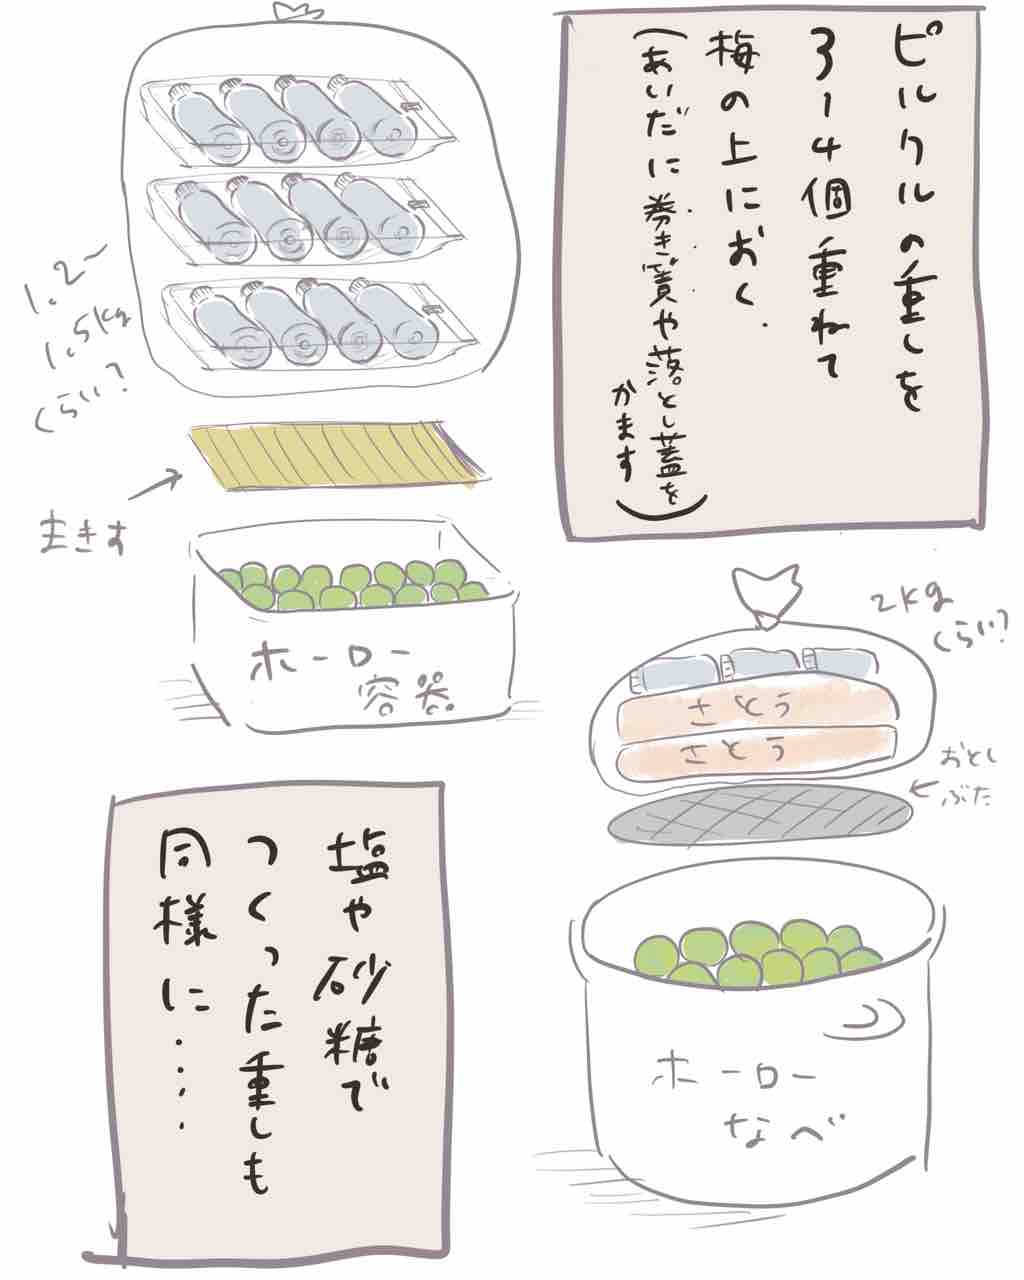 ピルクルの重しを
3〜4個重ねて
梅の上におく.
(あいだに巻き簀や落とし蓋を
かます)
1.2〜
1.5kg
くらい?
まきす
ホーロー
容器
2kg
くらい?
さとう
さとう
おとし
ぶた
ホーロー
なべ
塩や砂糖で
つくった重しも
同様に……